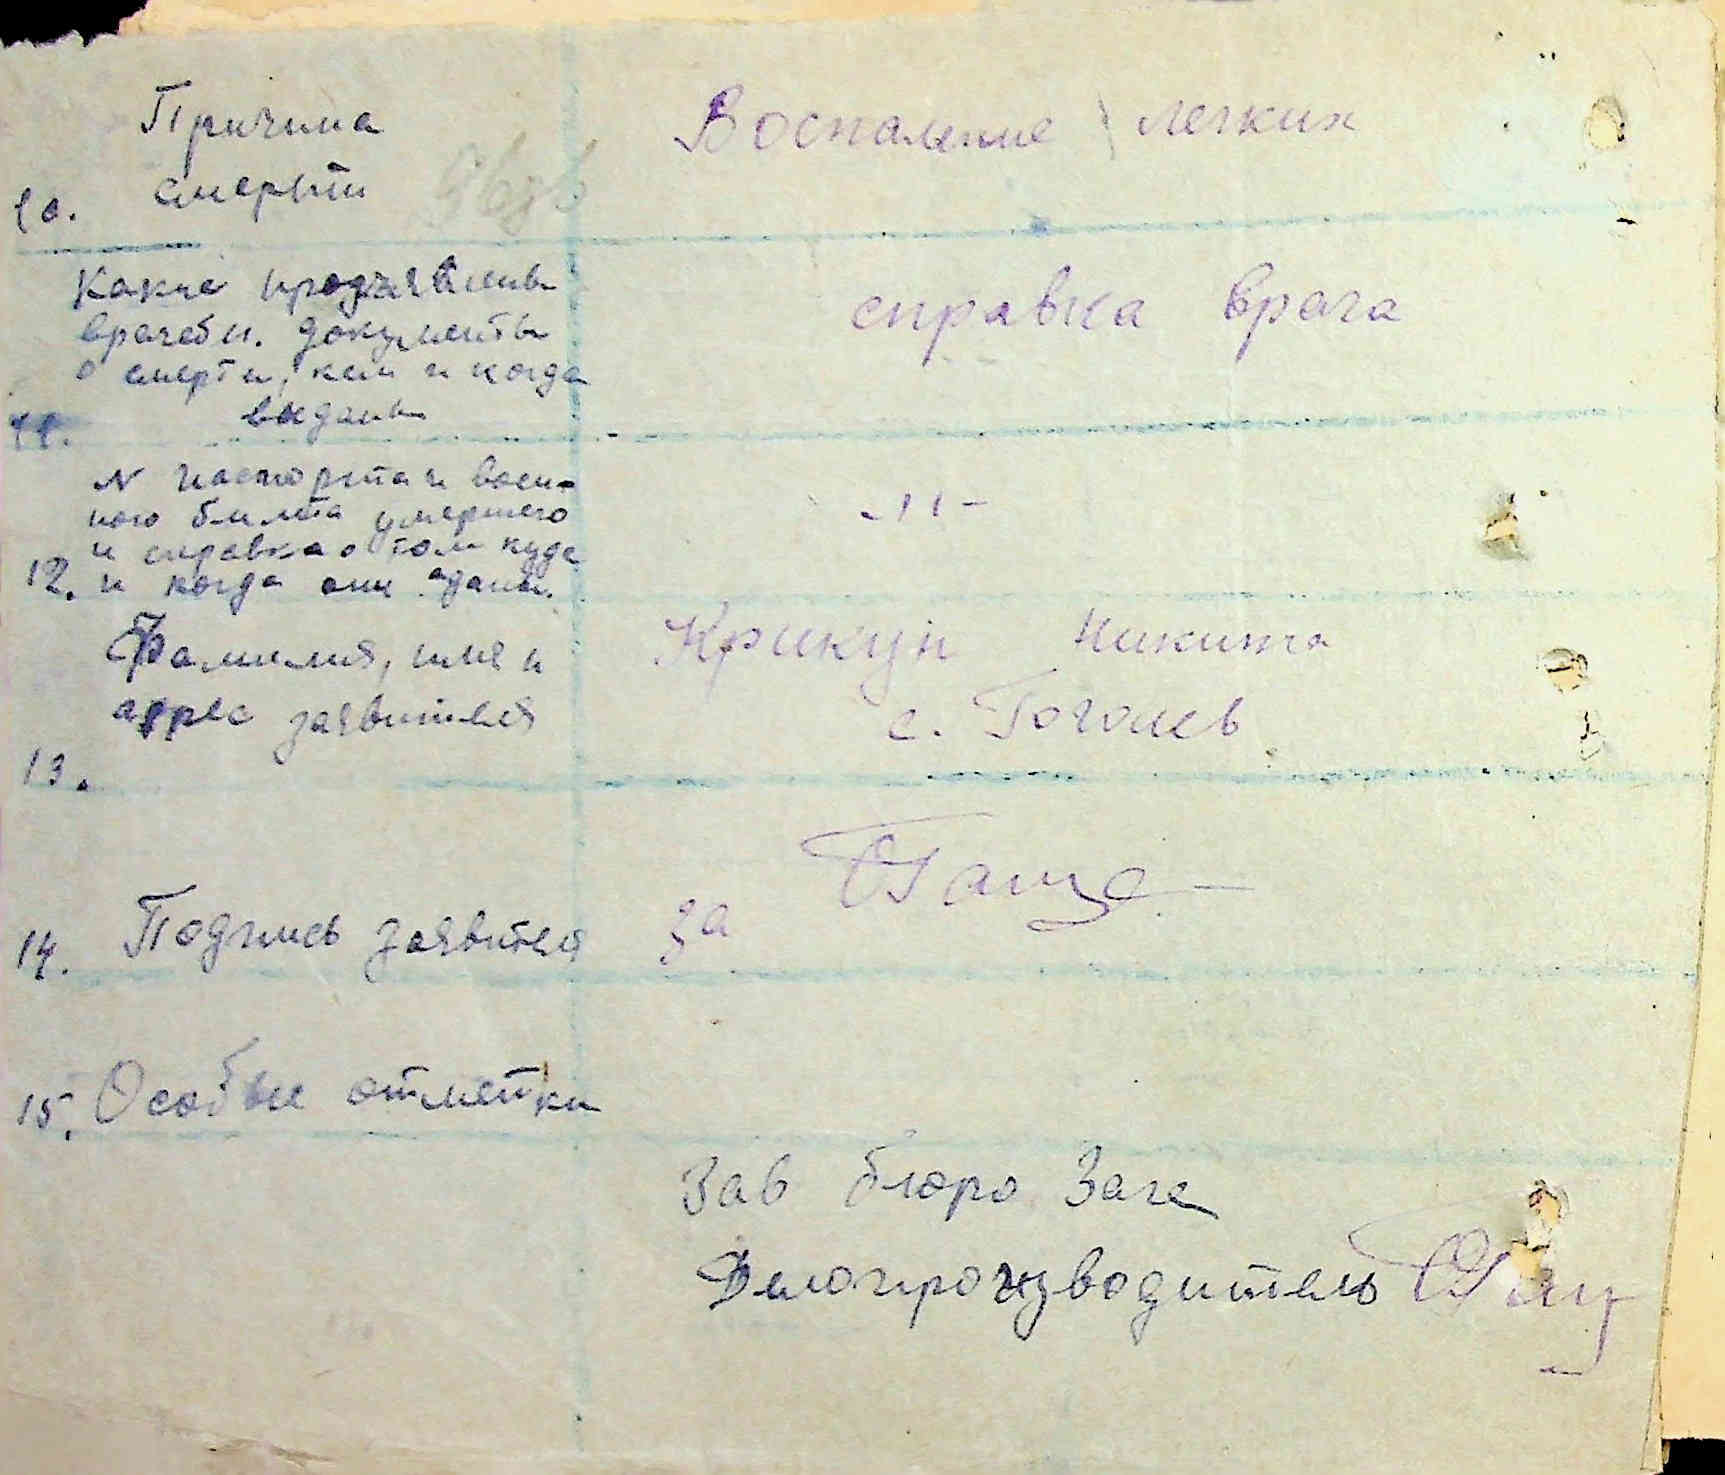 Причина
10. смерти
Воспаление легких
Какие предъявлены
врачебн. документы
о смерти, кем и когда
11. выданы
справка врача
N паспорта и воен-
ного билета умершего
и справка о том куда
12. и когда они сданы.
-11-
Фамилия, имя и
адрес заявителя
13.
Крикун Никита
с. Гоголев
14. Подпись заявителя
за
15. Особые отметки
Зав бюро Загс
Делопроизводитель